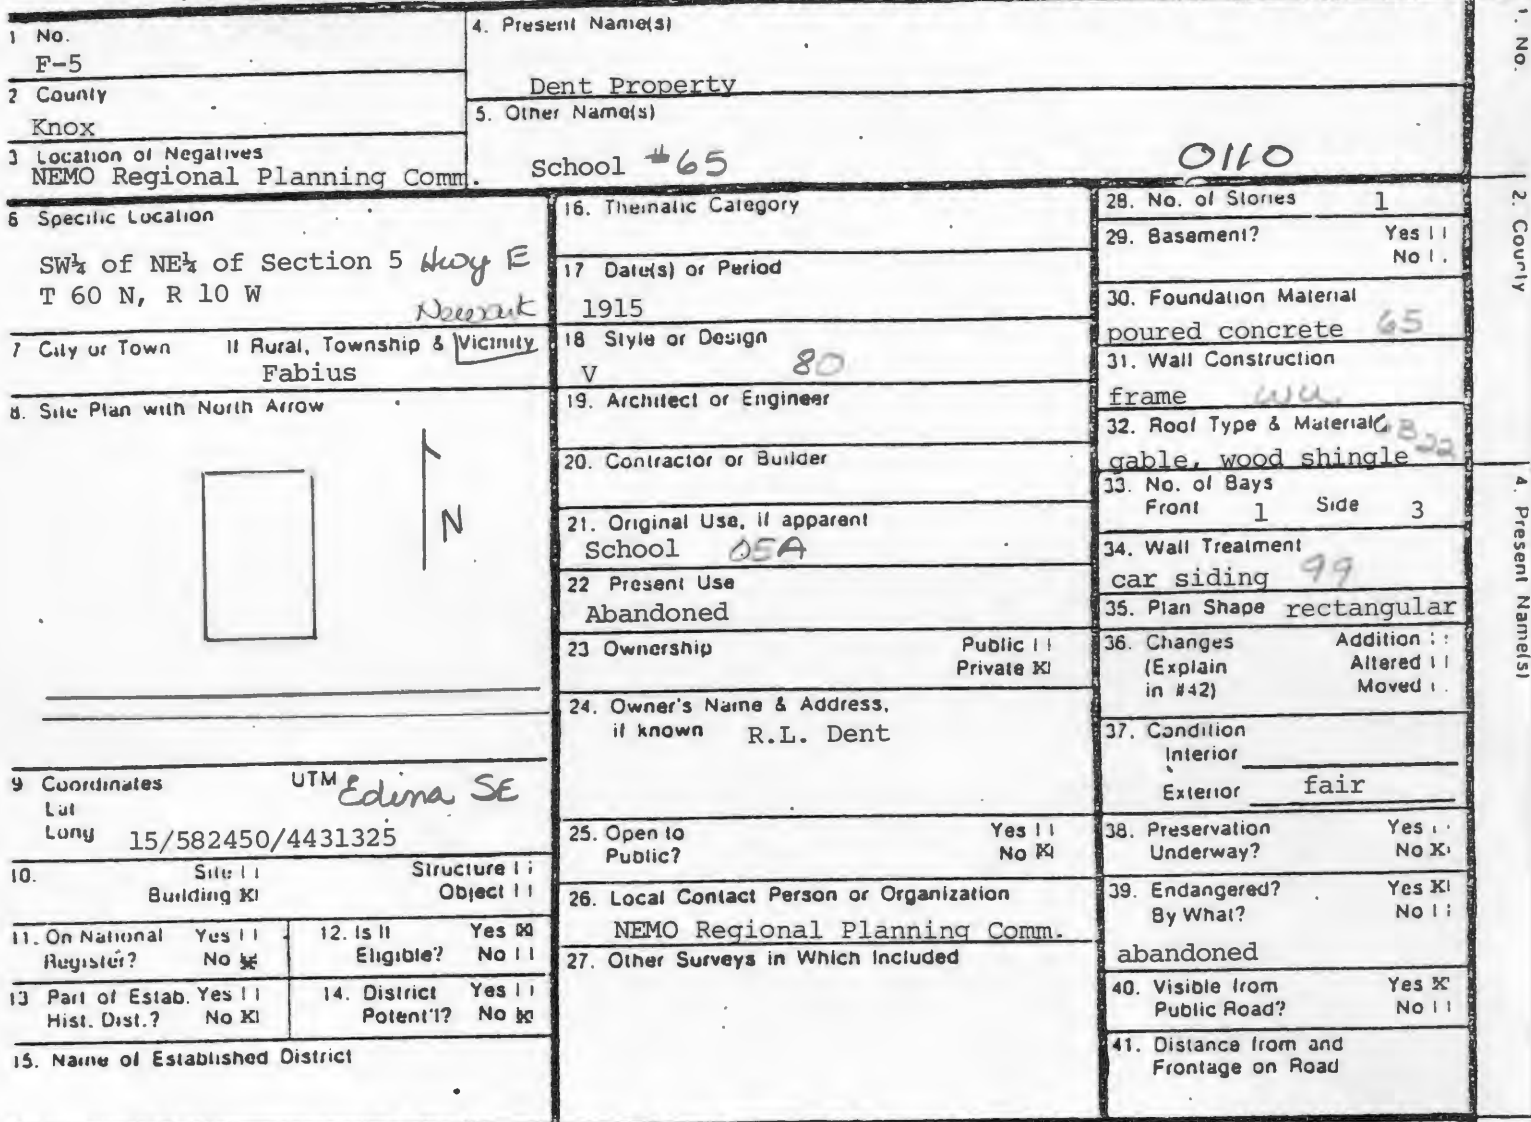 1 No.
F-5
2 County
Knox
3 Location of Negatives
NEMO Regional Planning Comm.
4. Present Name(s)
Dent Property
5. Other Name(s)
School #65
0110
6 Specific Location
SW¼ of NE¼ of Section 5 Hwy E
T 60 N, R 10 W
Newark
7 City or Town If Rural, Township & Vicinity
Fabius
8. Site Plan with North Arrow
N
9 Coordinates UTM Edina SE
Lat
Long 15/582450/4431325
10. Site | | Structure | |
Building X| Object | |
11. On National Register? Yes | | No X
12. Is It Eligible? Yes X No | |
13 Part of Estab. Hist. Dist.? Yes | | No X|
14. District Potent'l? Yes | | No X
15. Name of Established District
16. Thematic Category
17 Date(s) or Period
1915
18 Style or Design
V 80
19. Architect or Engineer
20. Contractor or Builder
21. Original Use, if apparent
School 05A
22 Present Use
Abandoned
23 Ownership Public | |
Private X|
24. Owner's Name & Address,
if known R.L. Dent
25. Open to Yes | |
Public? No X|
26. Local Contact Person or Organization
NEMO Regional Planning Comm.
27. Other Surveys in Which Included
28. No. of Stories 1
29. Basement? Yes | |
No | .
30. Foundation Material
poured concrete 65
31. Wall Construction
frame WU
32. Roof Type & Material GB 22
gable, wood shingle
33. No. of Bays
Front 1 Side 3
34. Wall Treatment
car siding 99
35. Plan Shape rectangular
36. Changes Addition | |
(Explain Altered | |
in #42) Moved | .
37. Condition
Interior
Exterior fair
38. Preservation Yes | |
Underway? No X|
39. Endangered? Yes X|
By What? No | |
abandoned
40. Visible from Yes X
Public Road? No | |
41. Distance from and
Frontage on Road
1. No.
2. County
4. Present Name(s)